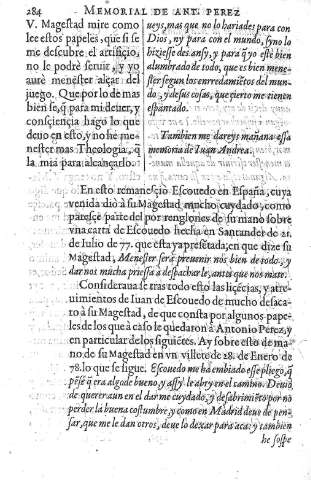 284 MEMORIAL DE ANT. PEREZ
V. Magestad mire como
lee estos papeles, que si se
me descubre el artificio,
no le podrè seruir, y yo
aurè menester alçar del
juego. Que por lo demas
bien sè, q̃ para mi deuer, y
consciencia hago lo que
deuo en esto, y no he me-
nester mas Theologia, q̃
la mia para alcançarlo.
ueys, mas que no lo hariades para con
Dios, ny para con el mundo, sy no lo
hiziesse des ansy, y para q̃ yo estè bien
alumbrado de todo, que es bien mene-
ster segun los enrredamiẽtos del mun-
do, y de sus cosas, que çierto me tienen
espantado.
Tambien me dareys mañana essa
memoria de Iuan Andrea.
En esto remanesçio Escouedo en España, cuya
venida diò à su Magestad mucho cuydado, como
paresçe parte del por renglones de su mano sobre
vna carta de Escouedo hecha en Santander de 21.
de Iulio de 77. que esta ya presẽtada; en que dize su
Magestad, Menester serà preuenir nos bien de todo, y
dar nos mucha priessa à despacharle, antes que nos mate.
Consideraua se tras todo esto las liçẽcias, y atre-
uimientos de Iuan de Escouedo de mucho desaca-
to à su Magestad, de que consta por algunos pape-
les de los que à caso le quedaron à Antonio Perez, y
en particular de los siguiẽtes. Ay sobre esto de ma-
no de su Magestad en vn villete de 28. de Enero de
78. lo que se sigue. Escouedo me ha embiado esse pliego, q̃
pẽse q̃ era algo de bueno, y assy le abry en el camino. Deuio
de querer aun en el dar me cuydado, y desabrimiẽto por no
perder la buena costumbre, y como en Madrid deue de pen-
sar, que me la dan otros, deue lo dexar para aca: y tambien
he sospe